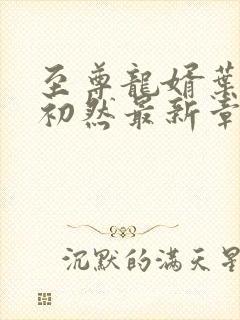 至尊龍婿葉
初然最新章
沉默的满天星